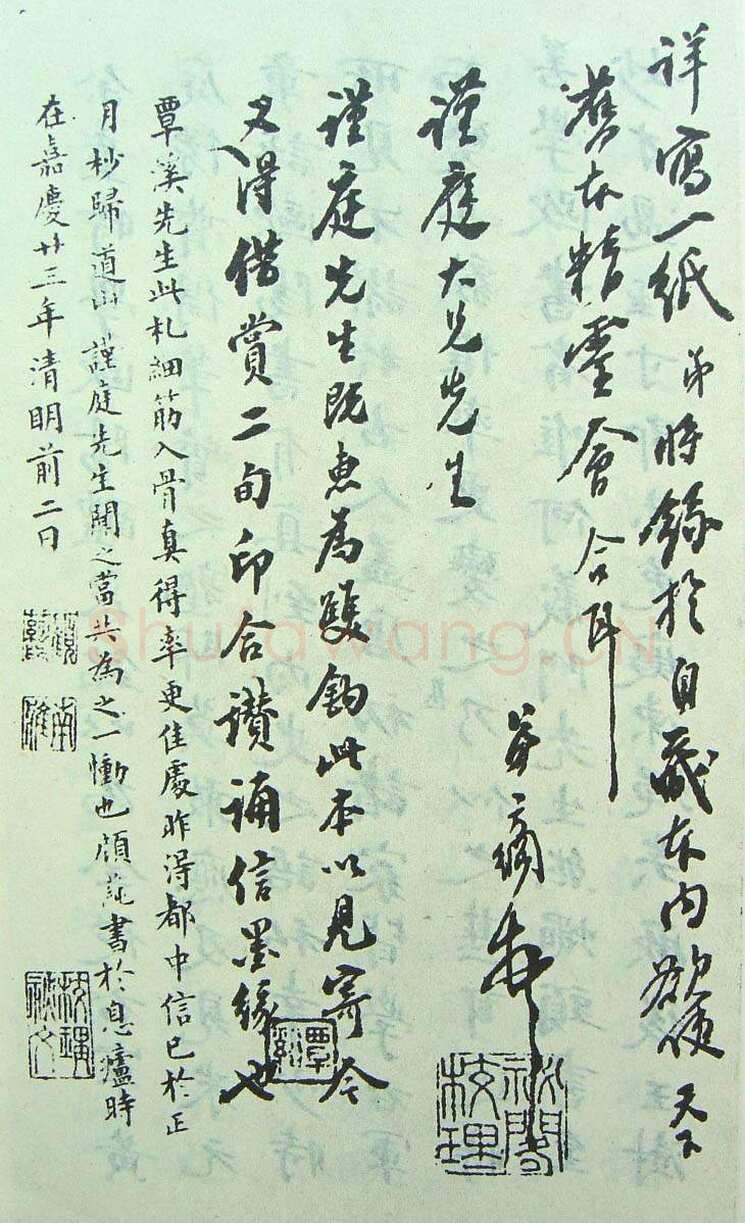 詳寫一紙弟時錄於自藏本內欲使天下
舊本精靈會合耳
弟方綱頓
謹庭大兄先生
謹庭先生既惠為雙鉤此本以見寄今
又得借賞二旬印合讚誦信墨緣也
覃溪
覃溪先生此札細筋入骨真得率更佳處昨得都中信已於正
月杪歸道山謹庭先生聞之當共為之一慟也顧蒓書於息廬時
在嘉慶廿三年清明前二日
Shufawang.CN